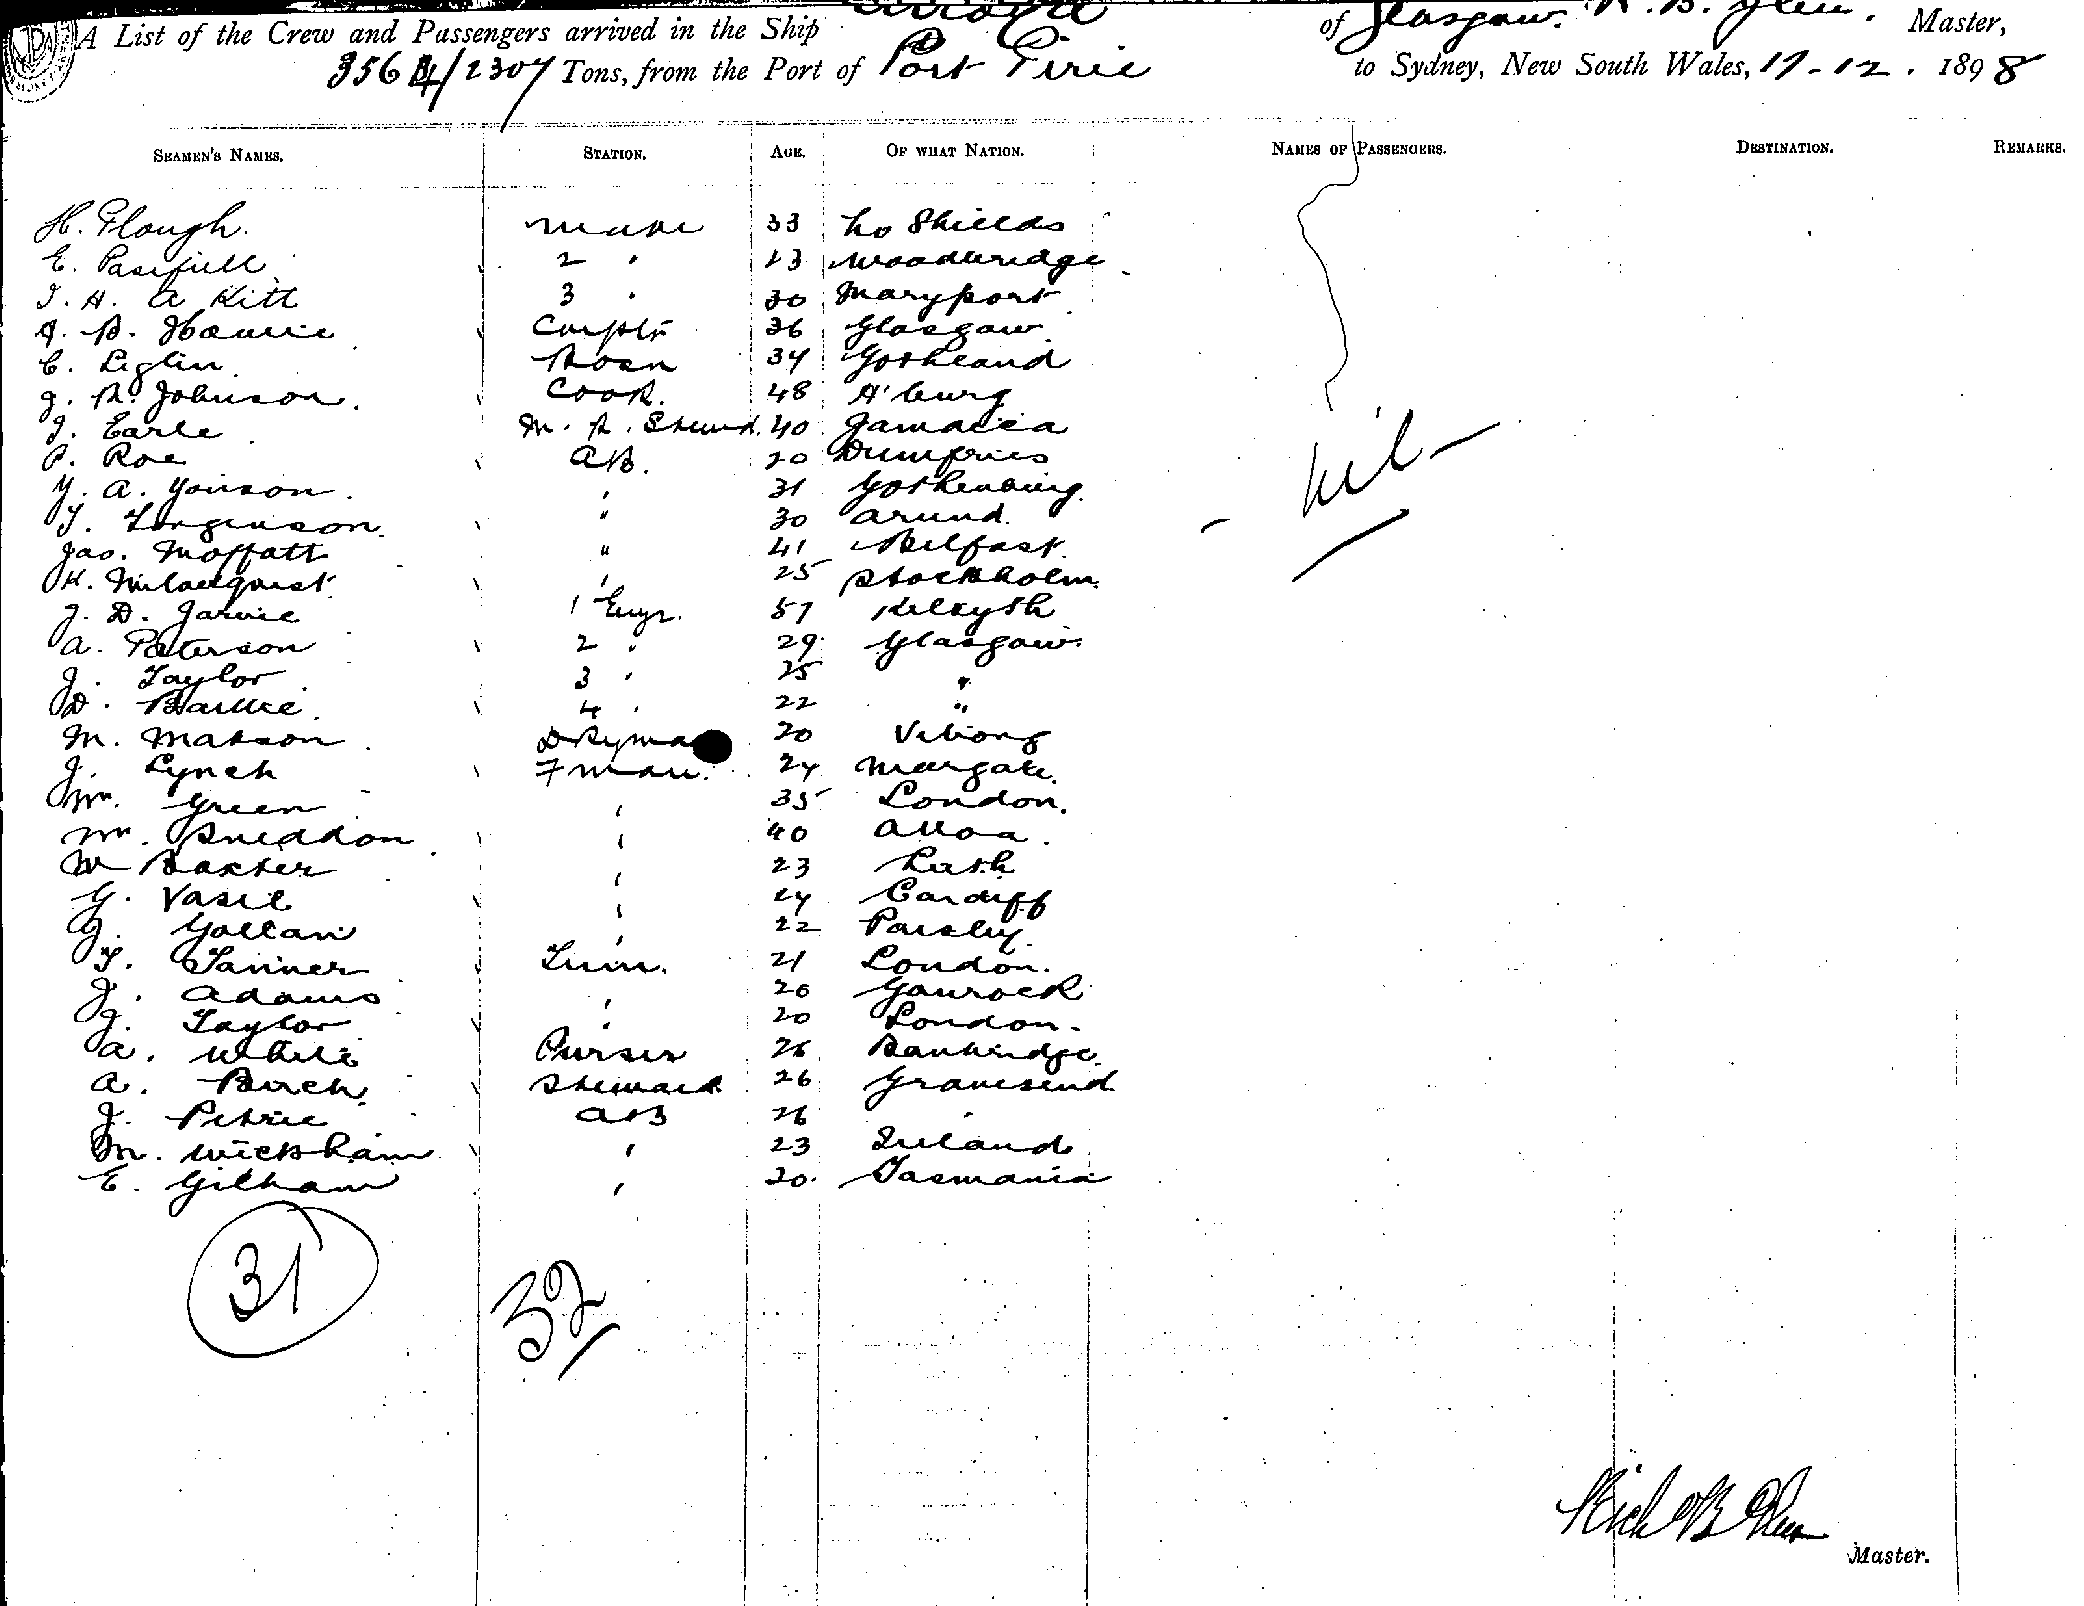 A List of the Crew and Passengers arrived in the Ship of Glasgow. R. B. Glen. Master,
3564/2307 Tons, from the Port of Port Pirie to Sydney, New South Wales, 17-12. 1898
SEAMEN'S NAMES. STATION. AGE. OF WHAT NATION. NAMES OF PASSENGERS. DESTINATION. REMARKS.
H. Plough. Mate 33 So Shields
E. 2 " 23 Woodbridge
J. H. A Kitt 3 " 30 Maryport
J. B. Carptr 36 Glasgow
C. Leglin Bosn 34 Gothland
J. R. Johnson. Cook. 48 H'burg
J. Earle M. R. Stewd. 40 Jamaica
P. Roe AB. 20 Dumfries
Y. A. Yonson. " 31 Gothenburg.
T. Torgenson. " 30 Arund.
Jas. Moffatt " 41 Belfast.
K. " 25 Stockholm.
J. D. Jarvie 1 Engr. 57 Kilsyth
A. Paterson 2 " 29 Glasgow
J. Taylor 3 " 25 "
D. Baillie. 4 " 22 "
M. Matson. 20
J. Lynch Fman. 24 Margate.
Wm. Green " 35 London.
Wm. Sneddon " 40 Alloa.
W Baxter " 23 Leith
G. Vasil " 24 Cardiff
J. " 22 Paisley.
T. Tanner Trim. 21 London.
J. Adams " 20 Gourock
J. Taylor " 20 London.
A. White Purser 26 Banbridge.
A. Birch. Steward 26 Gravesend
J. Petrie AB 26 "
M. Wickham " 23 Ireland
E. Gilham " 20. Tasmania
- Nil -
31
32
Rich B Glen
Master.